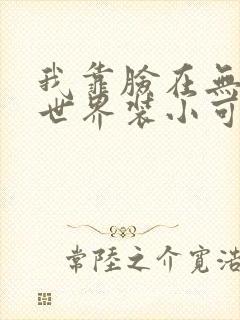 我靠臉在無
世界裝小可
常陸之介寬浩